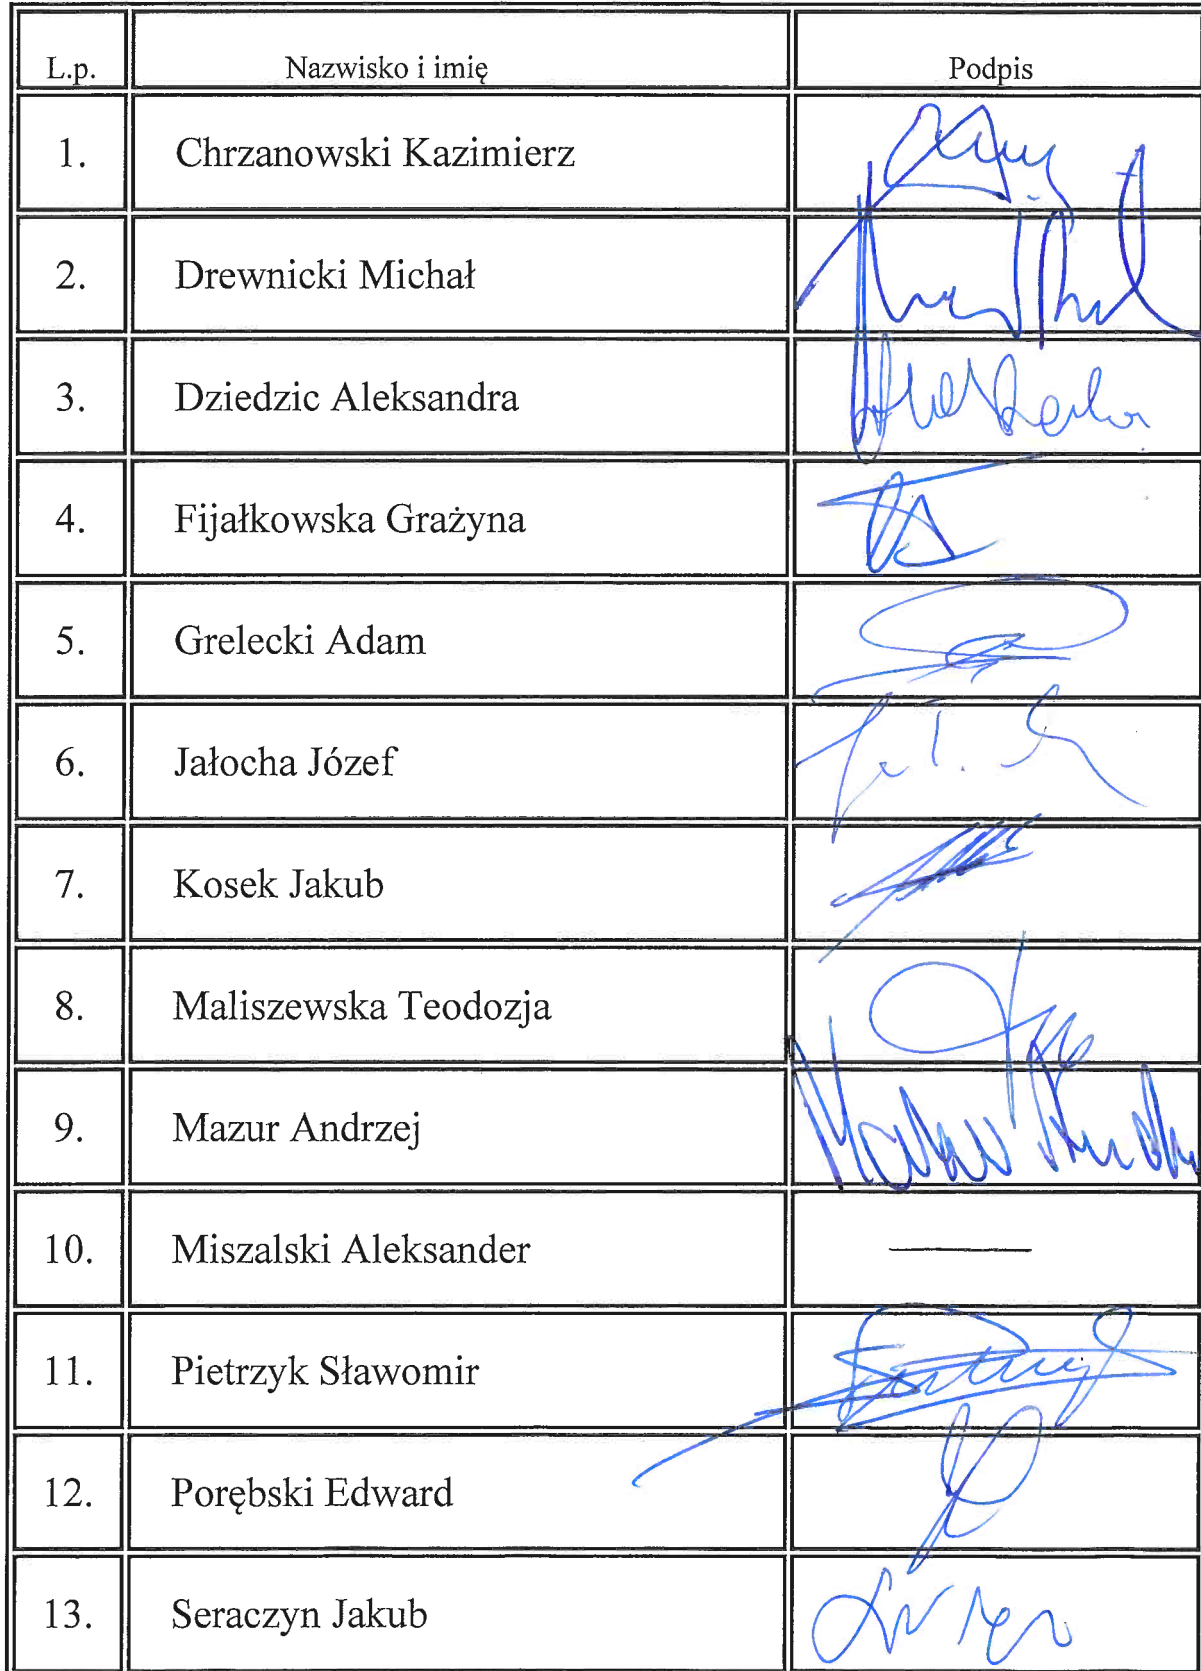 L.p. Nazwisko i imię Podpis
1. Chrzanowski Kazimierz
2. Drewnicki Michał
3. Dziedzic Aleksandra
4. Fijałkowska Grażyna
5. Grelecki Adam
6. Jałocha Józef
7. Kosek Jakub
8. Maliszewska Teodozja
9. Mazur Andrzej
10. Miszalski Aleksander —
11. Pietrzyk Sławomir
12. Porębski Edward
13. Seraczyn Jakub